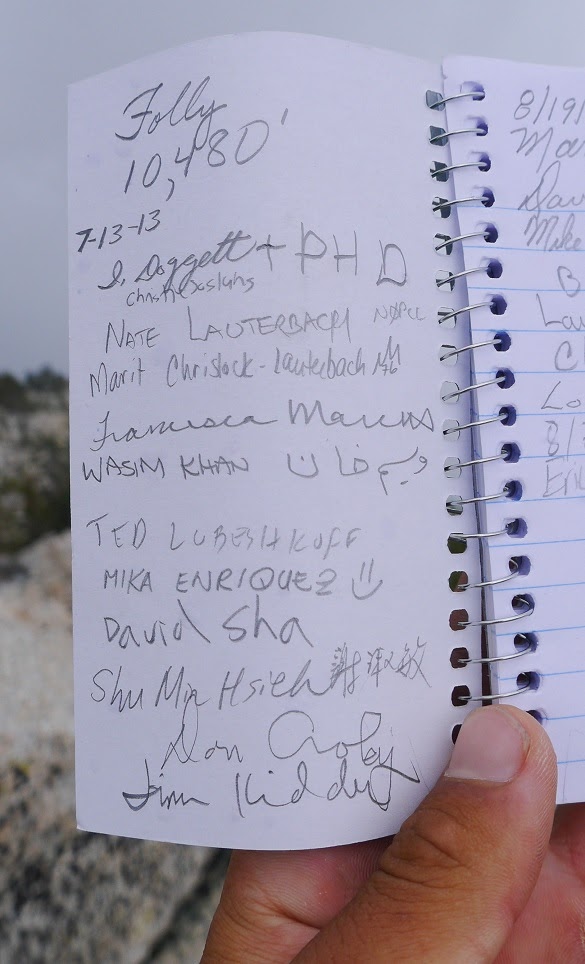 Folly
10,480'
7-13-13
S. Doggett + PHD
NATE LAUTERBACH
Marit Christock-Lauterbach
Francesca Marcus
WASIM KHAN وسیم خان
TED LUBESHKOFF
MIKA ENRIQUEZ
David Sha
Shu Min Hsieh 謝淑敏
Don Croley
Jim Kidder
8/19/
Mar
Dav
Mike
B
Lau
C
Lo
8/
Eric